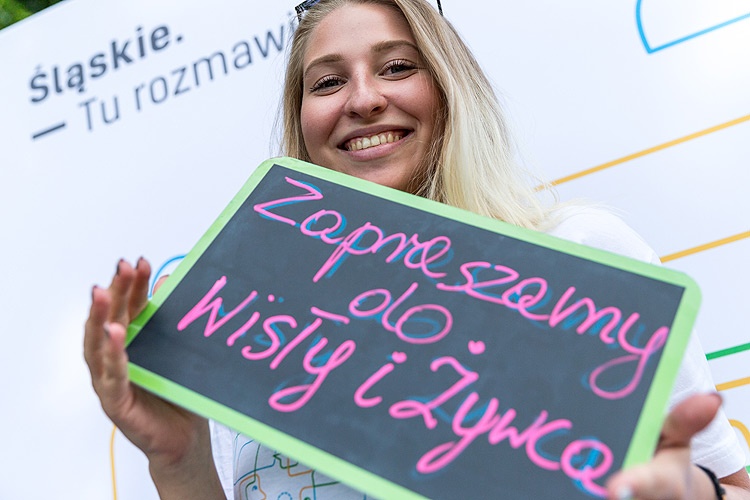 Śląskie.
– Tu rozmawi
Zapraszamy
do
Wisły i Żywca